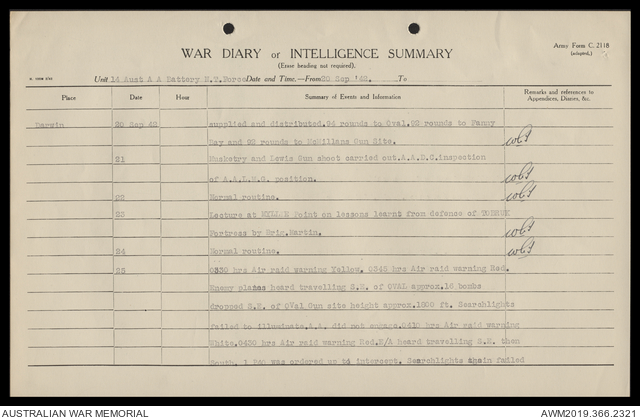 Army Form C. 2118
(adapted.)
WAR DIARY or INTELLIGENCE SUMMARY
(Erase heading not required).
Unit 14 Aust A A Battery N.T.Force Date and Time.—From 20 Sep '42. To
Place Date Hour Summary of Events and Information Remarks and references to Appendices, Diaries, &c.
Darwin 20 Sep 42 supplied and distributed.94 rounds to Oval.92 rounds to Fanny
Bay and 92 rounds to McMillans Gun Site.
21 Musketry and Lewis Gun shoot carried out.A.A.D.C.inspection
of A.A.L.M.G. position.
22 Normal routine.
23 Lecture at Point on lessons learnt from defence of TOBRUK
Fortress by Brig.Martin.
24 Normal routine.
25 0330 hrs Air raid warning Yellow. 0345 hrs Air raid warning Red.
Enemy planes heard travelling S.E. of OVAL approx.16 bombs
dropped S.E. of OVal Gun site height approx. Searchlights
failed to illuminate.A.A. did not engage.0410 hrs Air raid warning
White.0430 hrs Air raid warning Red.E/A heard travelling S.E. then
South. 1 was ordered up to intercept. Searchlights again failed
AUSTRALIAN WAR MEMORIAL
AWM2019.366.2321